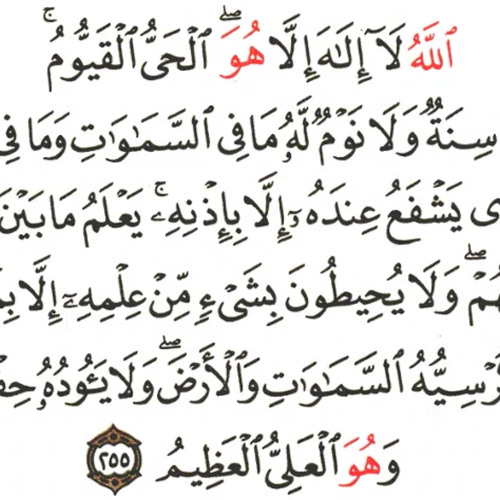 ٱللَّهُ لَآ إِلَـٰهَ إِلَّا هُوَ ۖ ٱلْحَىُّ ٱلْقَيُّومُ ۚ
سِنَةٌ وَلَا نَوْمٌ لَّهُۥ مَا فِى ٱلسَّمَـٰوَٰتِ وَمَا فِى
ى يَشْفَعُ عِندَهُۥٓ إِلَّا بِإِذْنِهِۦ ۚ يَعْلَمُ مَا بَيْنَ
هُمْ ۖ وَلَا يُحِيطُونَ بِشَىْءٍ مِّنْ عِلْمِهِۦٓ إِلَّا بِمَ
رْسِيُّهُ ٱلسَّمَـٰوَٰتِ وَٱلْأَرْضَ ۖ وَلَا يَـُٔودُهُۥ حِفْ
وَهُوَ ٱلْعَلِىُّ ٱلْعَظِيمُ ٢٥٥